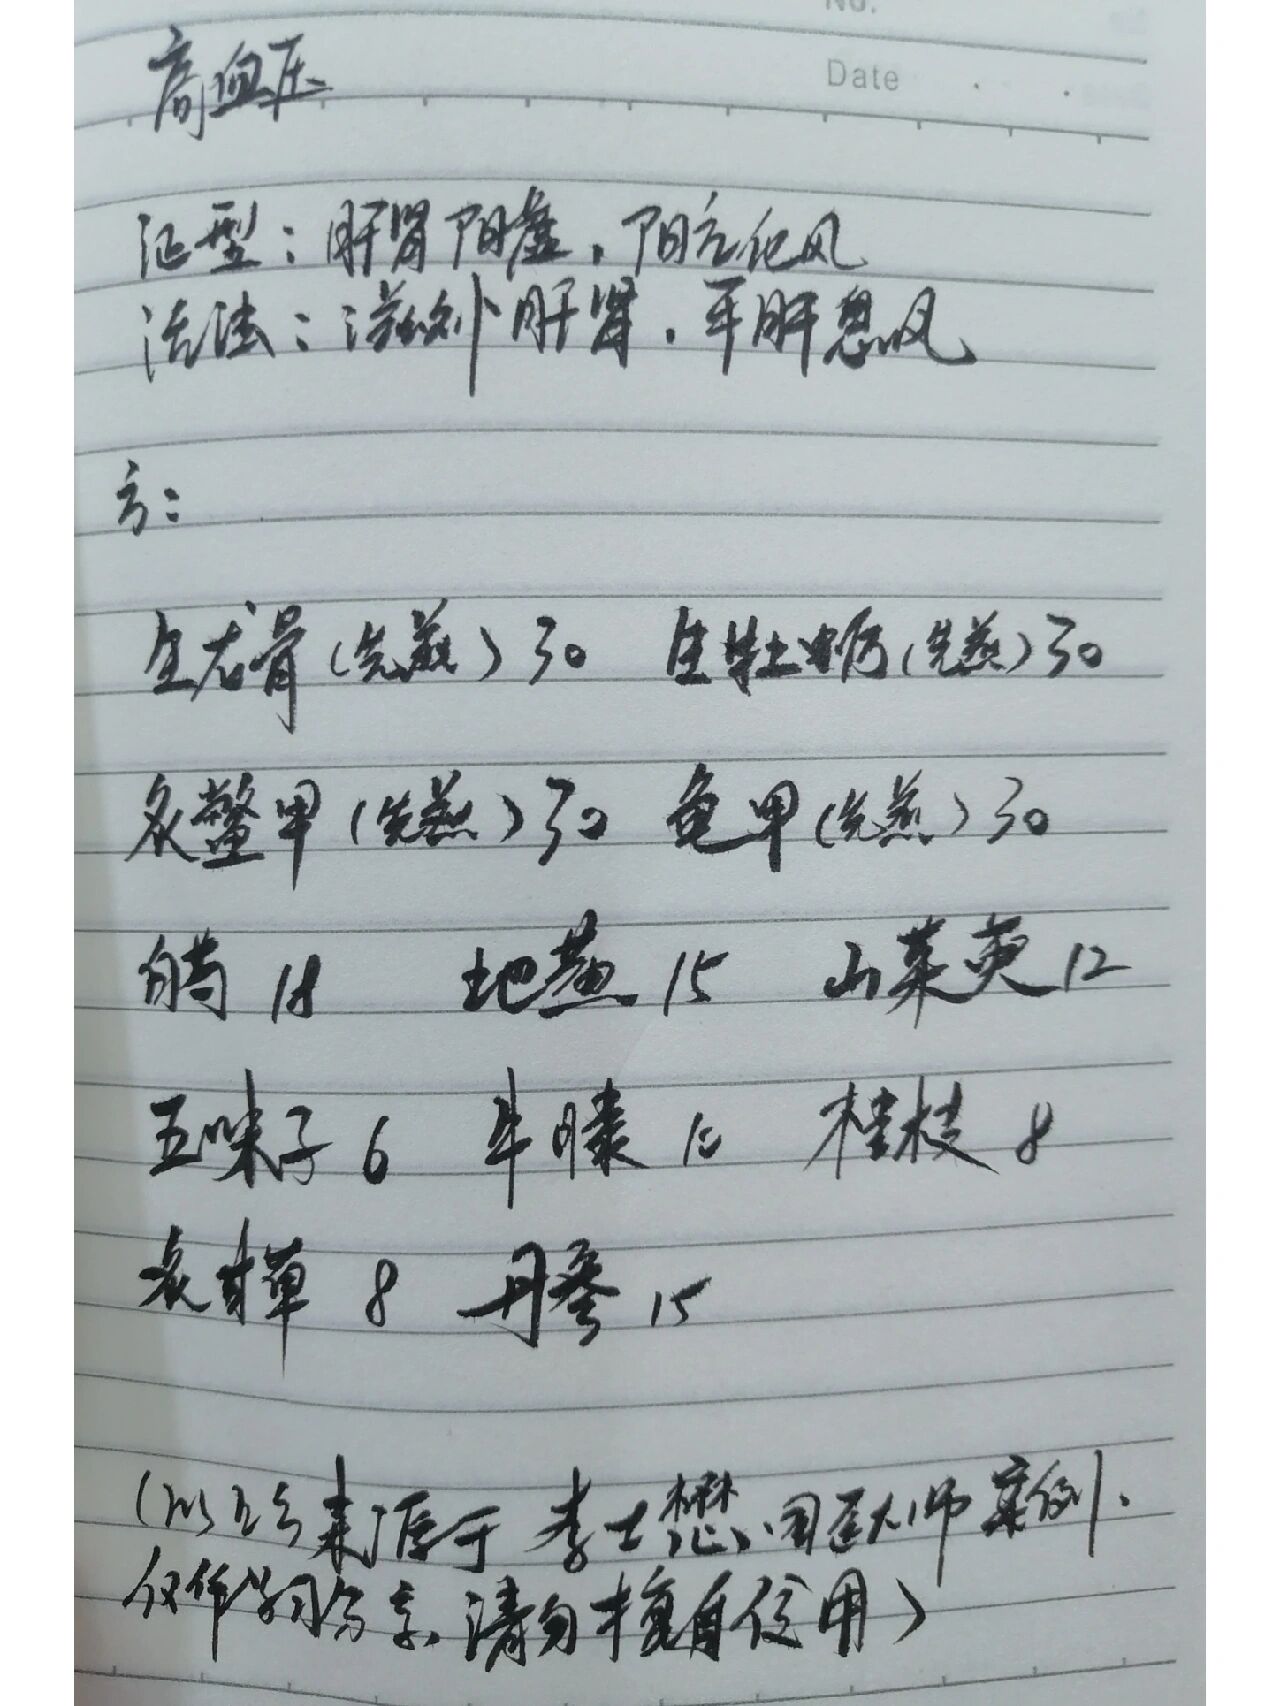 No.
Date
高血压
证型：肝肾阴虚，阳亢化风
治法：滋补肝肾，平肝息风
方：
生龙骨（先煎）30 生牡蛎（先煎）30
炙鳖甲（先煎）30 龟甲（先煎）30
白芍 18 地黄 15 山茱萸 12
五味子 6 牛膝 10 桂枝 8
炙甘草 8 丹参 15
（以上方来源于 李士懋 国医大师 案例，
仅作学习分享，请勿擅自使用）